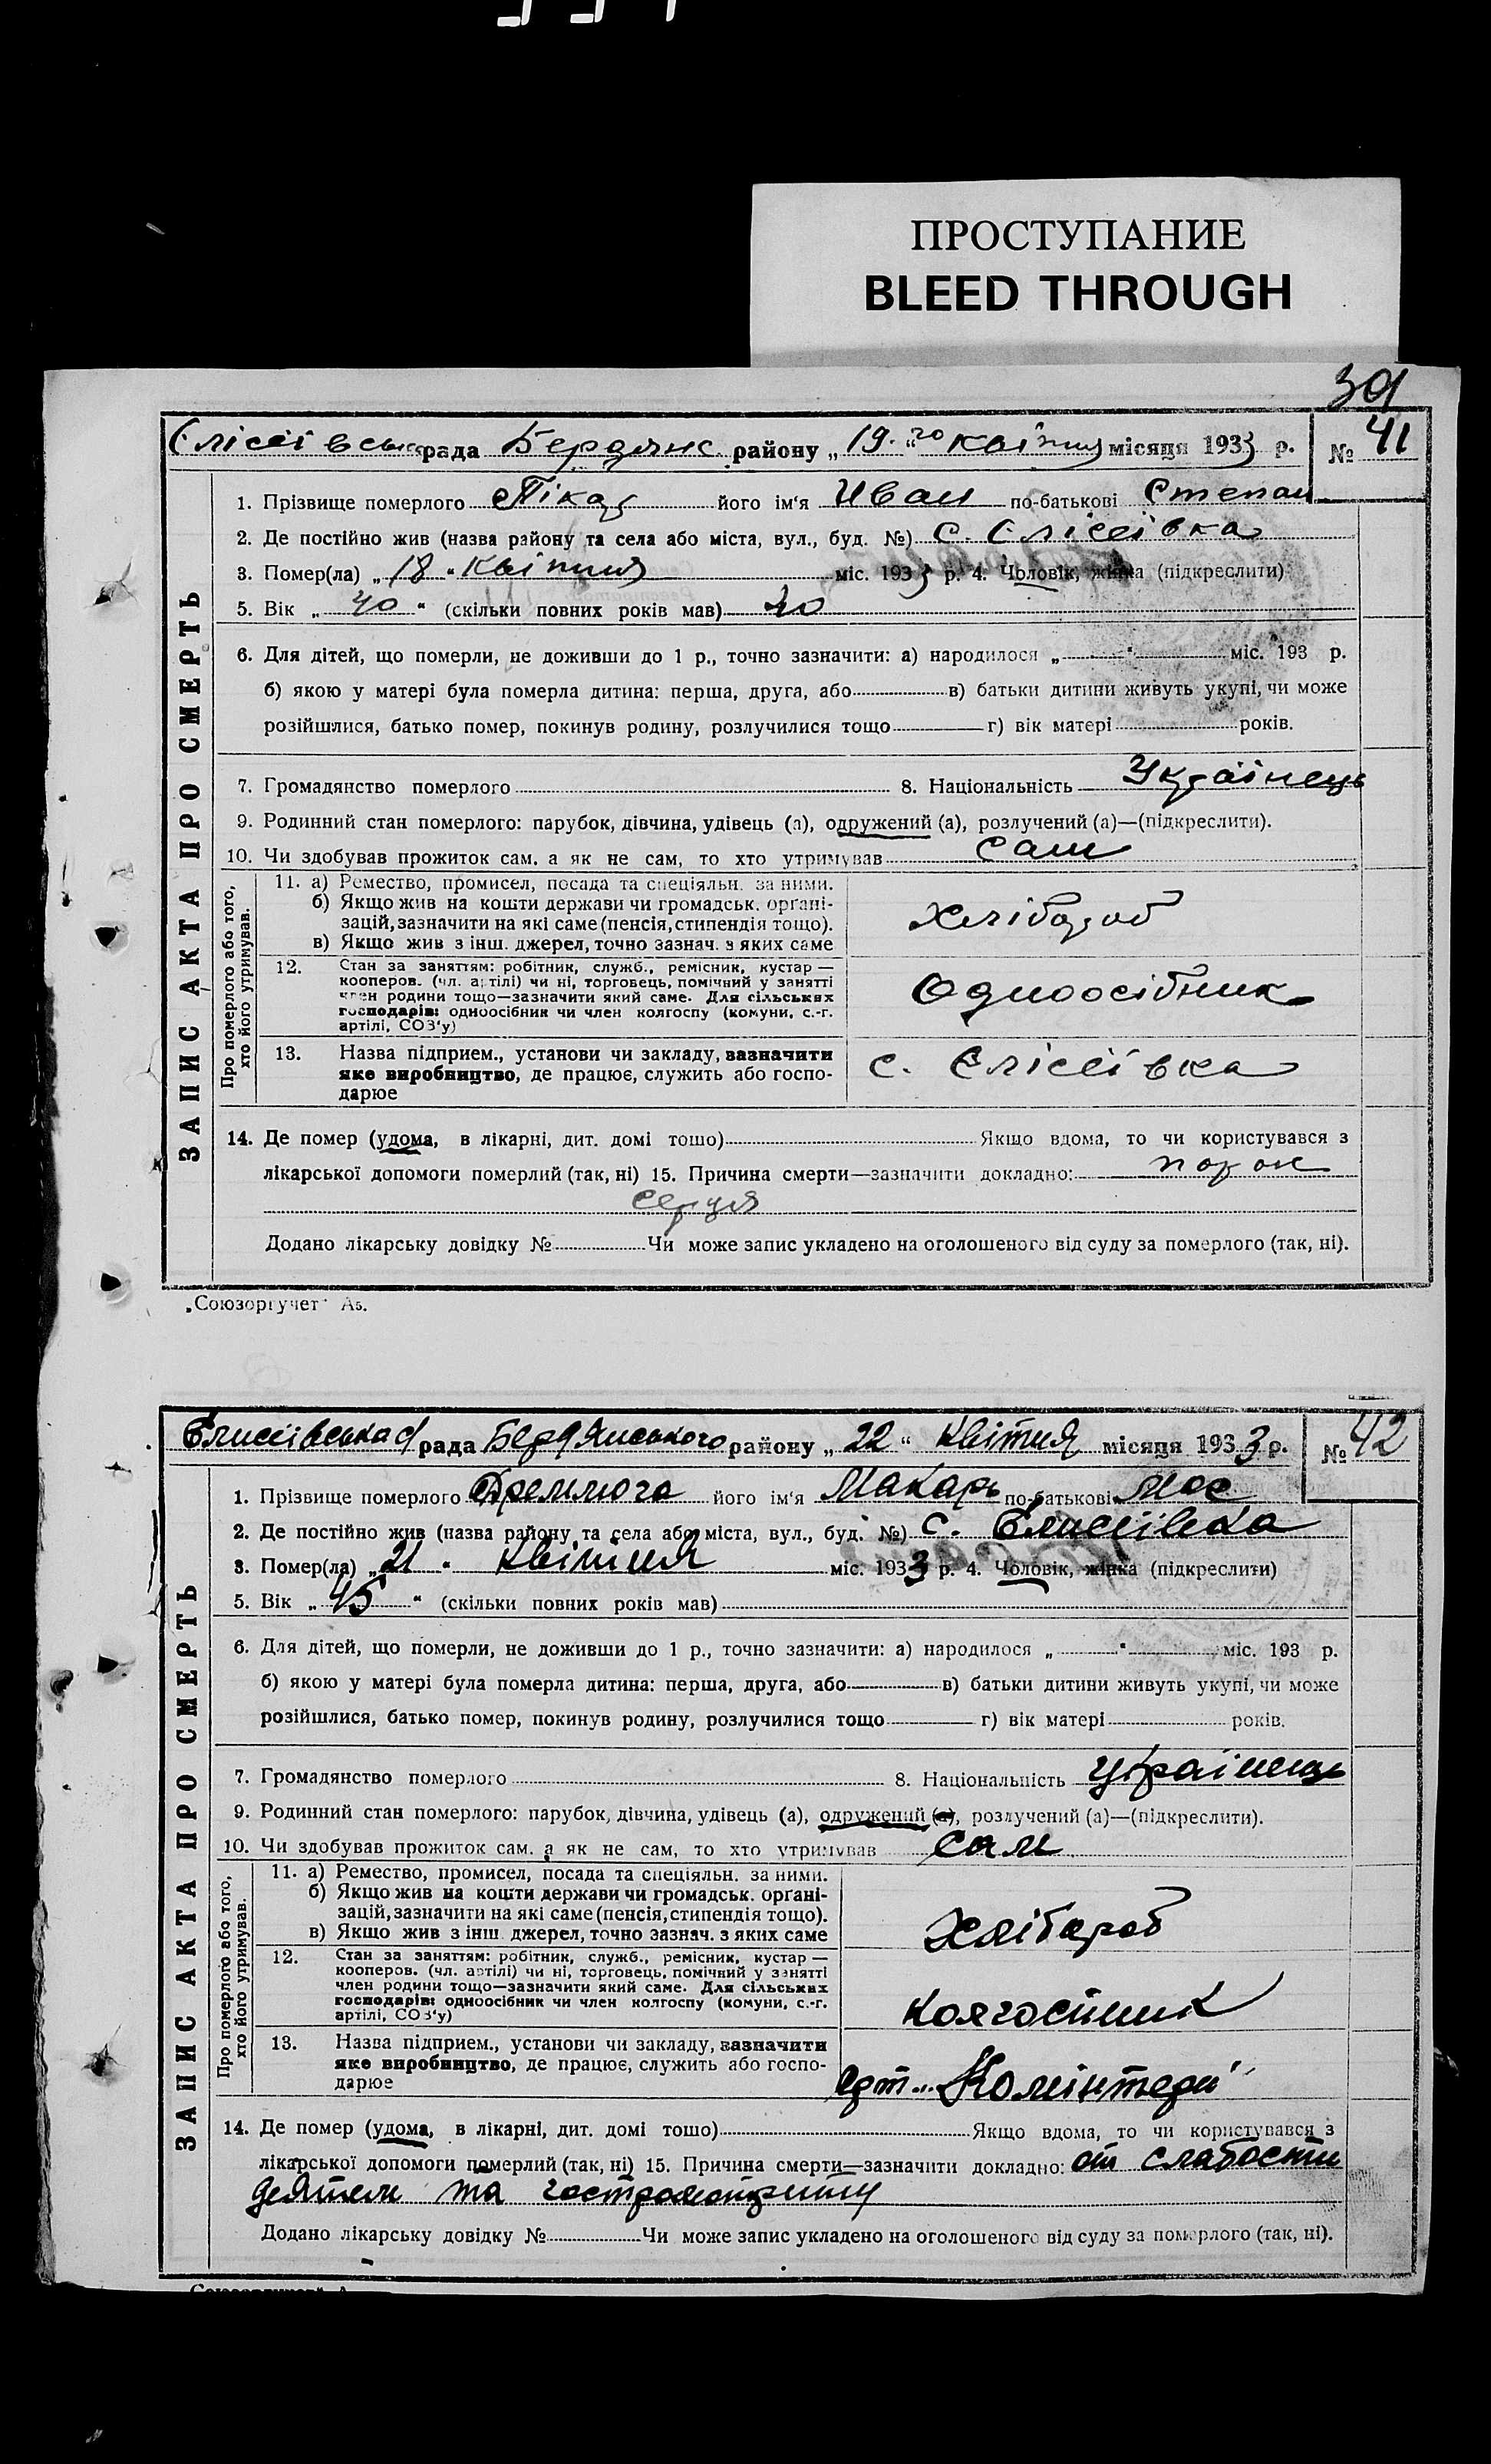 ПРОСТУПАНИЕ
BLEED THROUGH
301
Єлісеївська рада Бердянс. району „19.“ го квітня місяця 1933 р. № 41
1. Прізвище померлого Пікар його ім‘я Иван по-батькові Степан
2. Де постійно жив (назва району та села або міста, вул., буд. №) с. Єлісеївка
3. Помер(ла) „18“ квітня міс. 1933 р. 4. Чоловік, жінка (підкреслити)
5. Вік „40“ (скільки повних років мав) 40
6. Для дітей, що померли, не доживши до 1 р., точно зазначити: а) народилося „ “ міс. 193 р.
б) якою у матері була померла дитина: перша, друга, або в) батьки дитини живуть укупі, чи може
розійшлися, батько помер, покинув родину, розлучилися тощо г) вік матері років.
7. Громадянство померлого 8. Національність Українець
9. Родинний стан померлого: парубок, дівчина, удівець (а), одружений (а), розлучений (а)—(підкреслити).
10. Чи здобував прожиток сам, а як не сам, то хто утримував сам
ЗАПИС АКТА ПРО СМЕРТЬ
Про померлого або того,
хто його утримував.
11. а) Ремество, промисел, посада та спеціяльн. за ними.
б) Якщо жив на кошти держави чи громадськ. орґані-
зацій, зазначити на які саме (пенсія, стипендія тощо).
в) Якщо жив з інш. джерел, точно зазнач. з яких саме
Хлібороб
12. Стан за заняттям: робітник, служб., ремісник, кустар —
кооперов. (чл. артілі) чи ні, торговець, помічний у занятті
член родини тощо—зазначити який саме. Для сільських
господарів: одноосібник чи член колгоспу (комуни, с.-г.
артілі, СОЗ‘у)
Одноосібник
13. Назва підприєм., установи чи закладу, зазначити
яке виробництво, де працює, служить або госпо-
дарює
с. Єлісеївка
14. Де помер (удома, в лікарні, дит. домі тощо) Якщо вдома, то чи користувався з
лікарської допомоги померлий (так, ні) 15. Причина смерти—зазначити докладно: порок
серця
Додано лікарську довідку № Чи може запис укладено на оголошеного від суду за померлого (так, ні).
„Союзоргучет“ Аз.
Єлисеївська рада Бердянського району „22“ квітня місяця 1933 р. № 42
1. Прізвище померлого Дремлюга його ім‘я Макарь по-батькові Мос
2. Де постійно жив (назва району та села або міста, вул., буд. №) с. Єлисеївка
3. Помер(ла) „21“ квітня міс. 1933 р. 4. Чоловік, жінка (підкреслити)
5. Вік „45“ (скільки повних років мав)
6. Для дітей, що померли, не доживши до 1 р., точно зазначити: а) народилося „ “ міс. 193 р.
б) якою у матері була померла дитина: перша, друга, або в) батьки дитини живуть укупі, чи може
розійшлися, батько помер, покинув родину, розлучилися тощо г) вік матері років.
7. Громадянство померлого 8. Національність українець
9. Родинний стан померлого: парубок, дівчина, удівець (а), одружений (а), розлучений (а)—(підкреслити).
10. Чи здобував прожиток сам, а як не сам, то хто утримував сам
ЗАПИС АКТА ПРО СМЕРТЬ
Про померлого або того,
хто його утримував.
11. а) Ремество, промисел, посада та спеціяльн. за ними.
б) Якщо жив на кошти держави чи громадськ. орґані-
зацій, зазначити на які саме (пенсія, стипендія тощо).
в) Якщо жив з інш. джерел, точно зазнач. з яких саме
Хлібароб
12. Стан за заняттям: робітник, служб., ремісник, кустар —
кооперов. (чл. артілі) чи ні, торговець, помічний у занятті
член родини тощо—зазначити який саме. Для сільських
господарів: одноосібник чи член колгоспу (комуни, с.-г.
артілі, СОЗ‘у)
колгоспник
13. Назва підприєм., установи чи закладу, зазначити
яке виробництво, де працює, служить або госпо-
дарює
арт. „Комінтерн“
14. Де помер (удома, в лікарні, дит. домі тощо) Якщо вдома, то чи користувався з
лікарської допомоги померлий (так, ні) 15. Причина смерти—зазначити докладно: от слабости
та
Додано лікарську довідку № Чи може запис укладено на оголошеного від суду за померлого (так, ні).